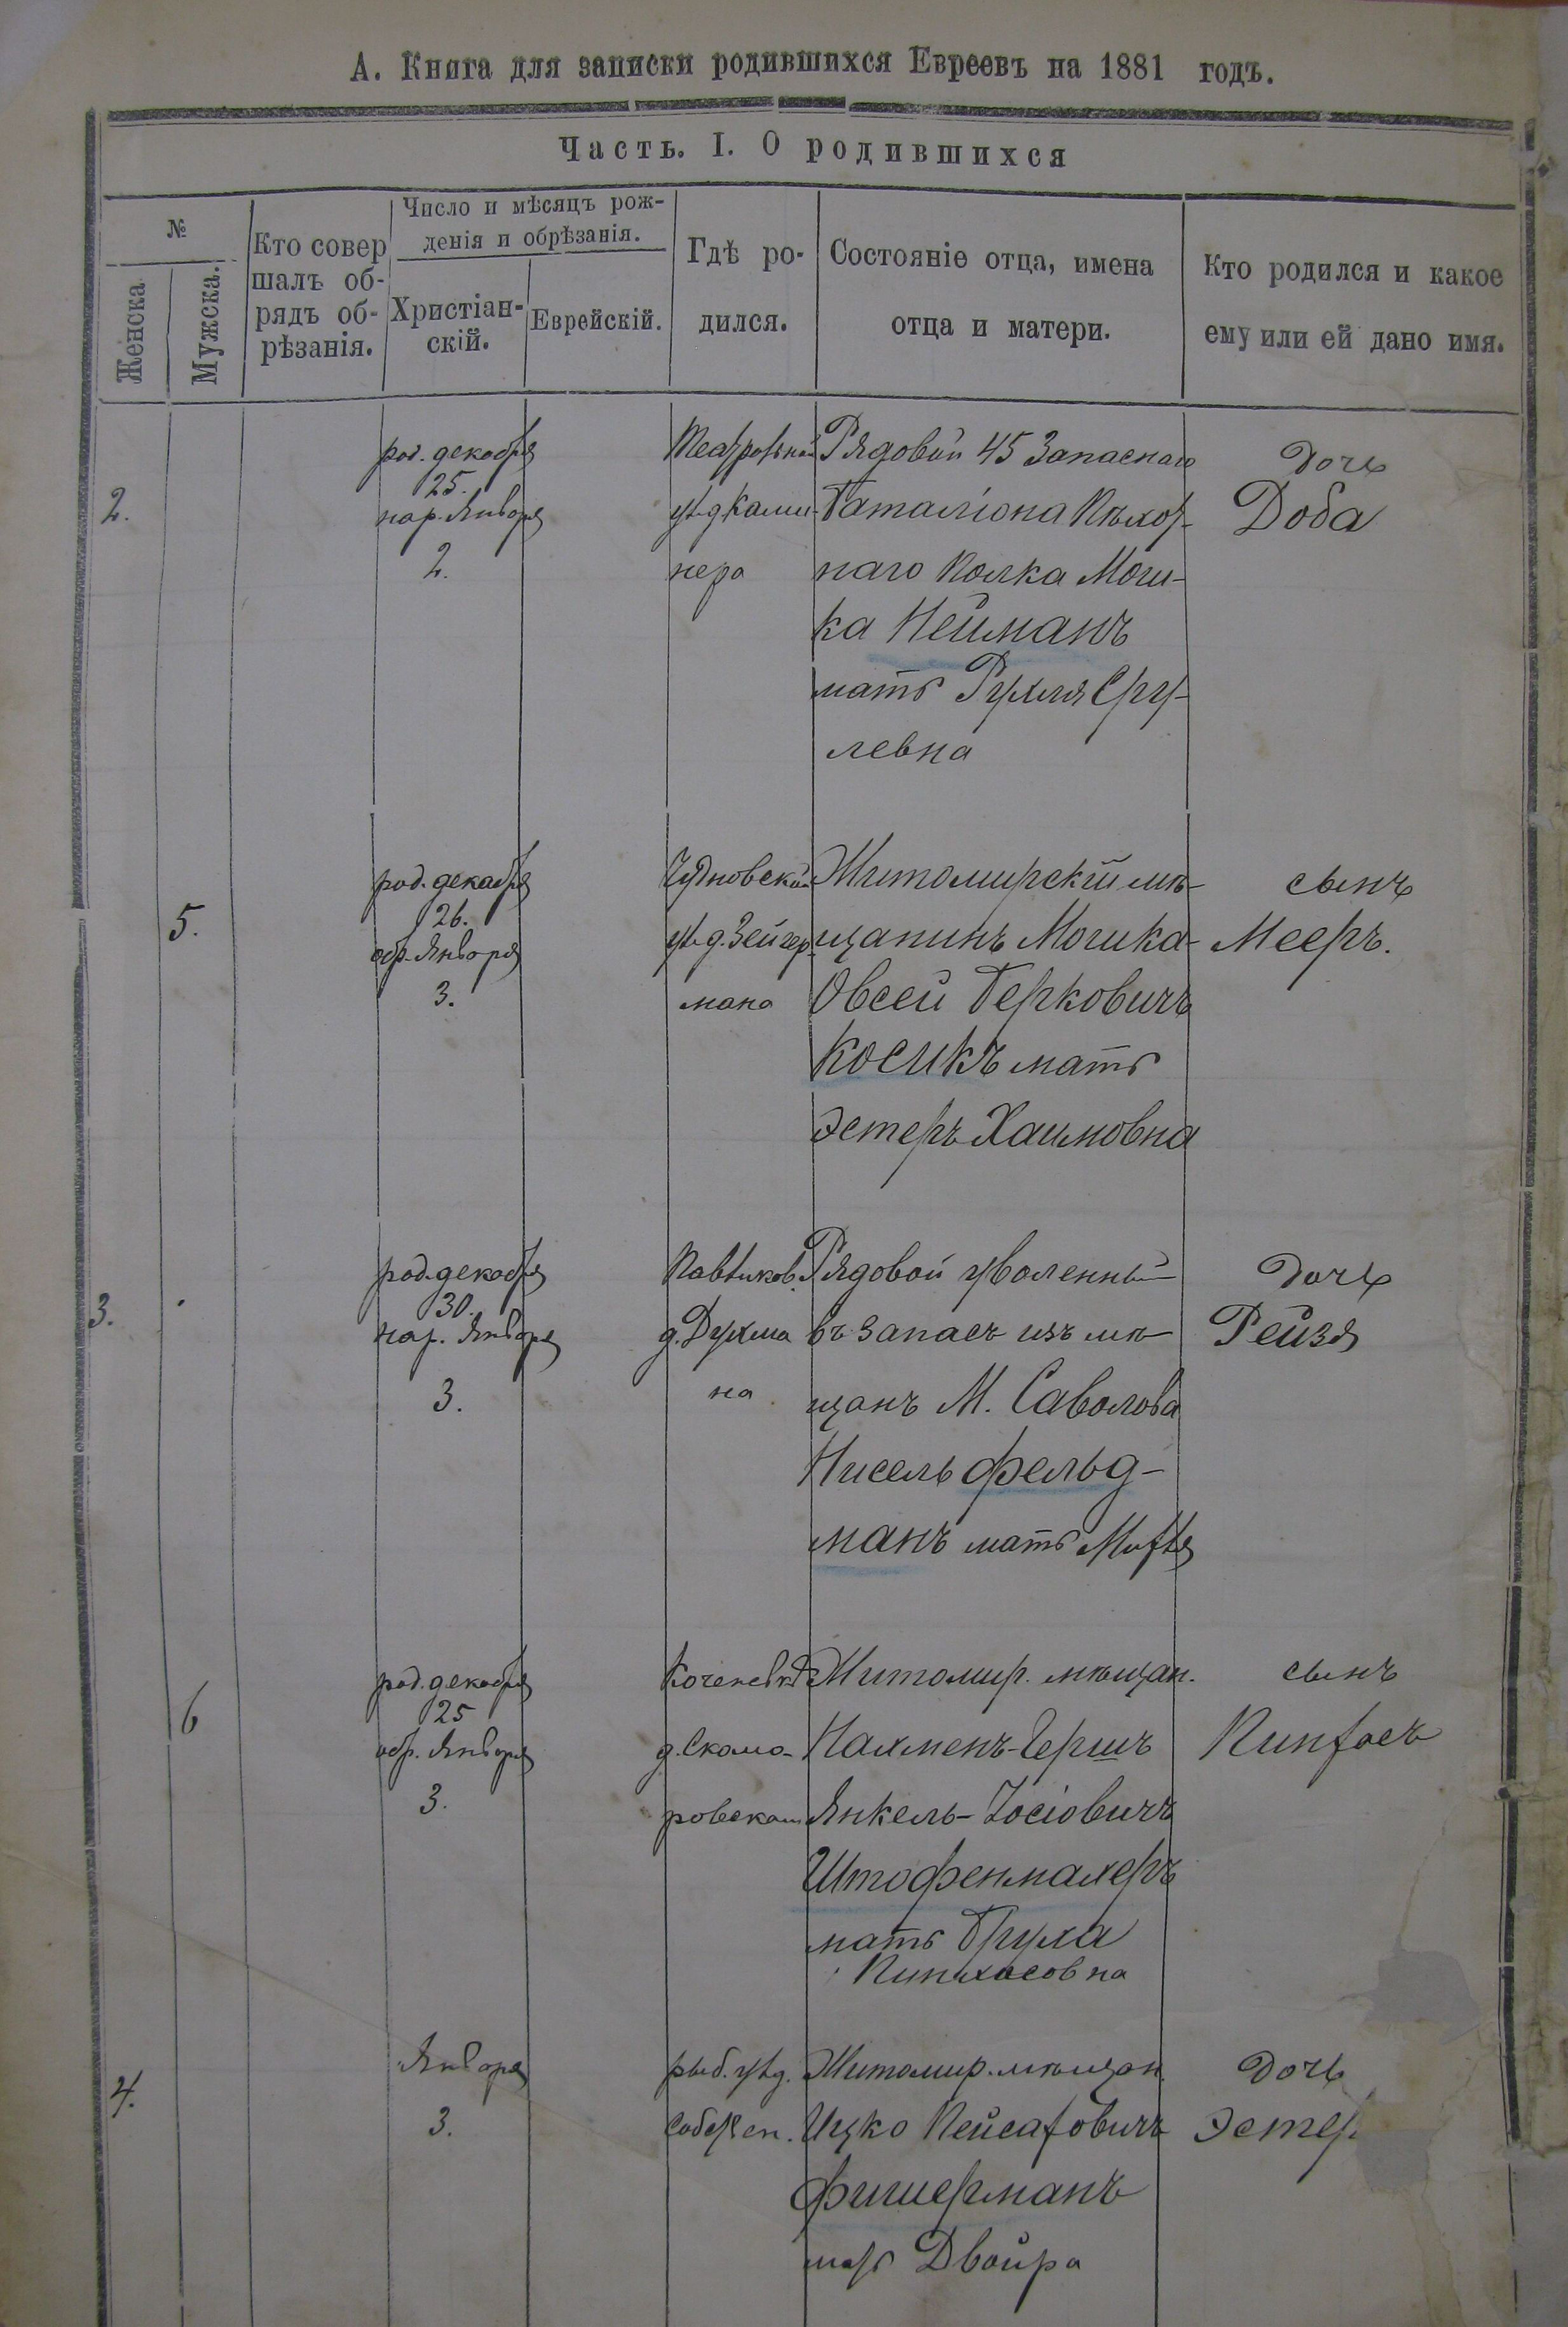 А. Книга для записки родившихся Евреевъ на 1881 годъ.
Часть. I. О родившихся
№
Женска
Мужска.
Кто совер
шалъ об-
рядъ об-
рѣзанія.
Число и мѣсяцъ рож-
денія и обрѣзанія.
Христіан-
скій.
Еврейскій.
Гдѣ ро-
дился.
Состояніе отца, имена
отца и матери.
Кто родился и какое
ему или ей дано имя.
2.
род. декабря
25.
нар. Января
2.
Рядовой 45 Запаснаго
Баталіона Пѣхот-
наго Полка Мош-
ка Нейманъ
мать Рухля Сру-
левна
дочь
Доба
5.
род. декабря
26.
обр. Января
3.
Чудновской
ул. д. Зейгер-
мана
Житомирскій мѣ-
щанинъ Мошка-
Овсей Берковичъ
Косикъ мать
Эстеръ Хаимовна
сынъ
Мееръ.
3.
род. декабря
30.
нар. Января
3.
д. Духма
на
Рядовой уволенный
въ запасъ изъ мѣ-
щанъ М. Саволова
Нисель Фельд-
манъ мать
дочь
Рейзя
6
род. декабря
25
обр. Января
3.
д. Скомо-
ровскаго
Житомир. мѣщан.
Нахменъ-Гершъ
Янкель-Іосіовичъ
Штофенмахеръ
мать Бруха
Пинхасовна
сынъ
Пинхасъ
4.
Января
3.
рыб. ул. д.
Собствен.
Житомир. мѣщан.
Ицко Пейсаховичъ
Фишерманъ
мать Двойра
дочь
Эстер